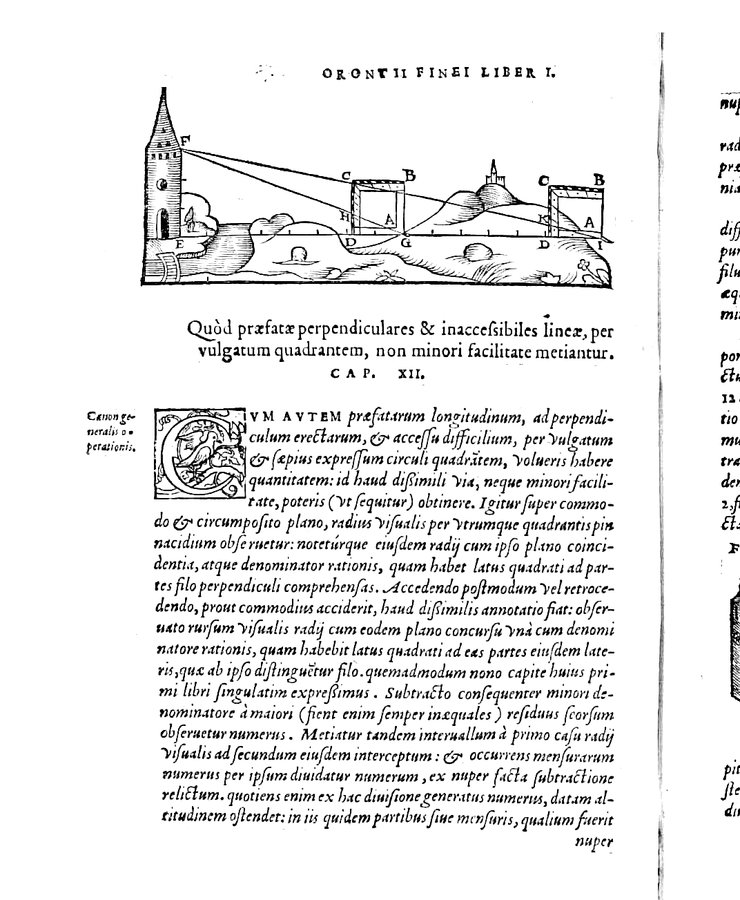 ORONTII FINEI LIBER I.
F
C B C B
H A K A
E D G D I
Quòd præfatæ perpendiculares & inaccessibiles lineæ, per
vulgatum quadrantem, non minori facilitate metiantur.
CAP. XII.
Canon ge-
neralis o-
perationis.
CVM AVTEM præfatarum longitudinum, ad perpendi-
culum erectarum, & accessu difficilium, per vulgatum
& sæpius expressum circuli quadrãtem, volueris habere
quantitatem: id haud dissimili via, neque minori facili-
tate, poteris (vt sequitur) obtinere. Igitur super commo-
do & circumposito plano, radius visualis per vtrumque quadrantis pin
nacidium obseruetur: notetúrque eiusdem radij cum ipso plano coinci-
dentia, atque denominator rationis, quam habet latus quadrati ad par-
tes filo perpendiculi comprehensas. Accedendo postmodum vel retroce-
dendo, prout commodius acciderit, haud dissimilis annotatio fiat: obser-
uato rursum visualis radij cum eodem plano concursu vnà cum denomi
natore rationis, quam habebit latus quadrati ad eas partes eiusdem late-
ris, quæ ab ipso distinguẽtur filo. quemadmodum nono capite huius pri-
mi libri singulatim expressimus. Subtracto consequenter minori de-
nominatore à maiori (fient enim semper inæquales) residuus seorsum
obseruetur numerus. Metiatur tandem interuallum à primo casu radij
visualis ad secundum eiusdem interceptum: & occurrens mensurarum
numerus per ipsum diuidatur numerum, ex nuper facta subtractione
relictum. quotiens enim ex hac diuisione generatus numerus, datam al-
titudinem ostendet: in iis quidem partibus siue mensuris, qualium fuerit
nuper
nup
rad
præ
nia
diff
pun
filu
æq
mi
por
ctu
12
tio
mu
tra
der
2, fi
cta
F
pit
ste
di